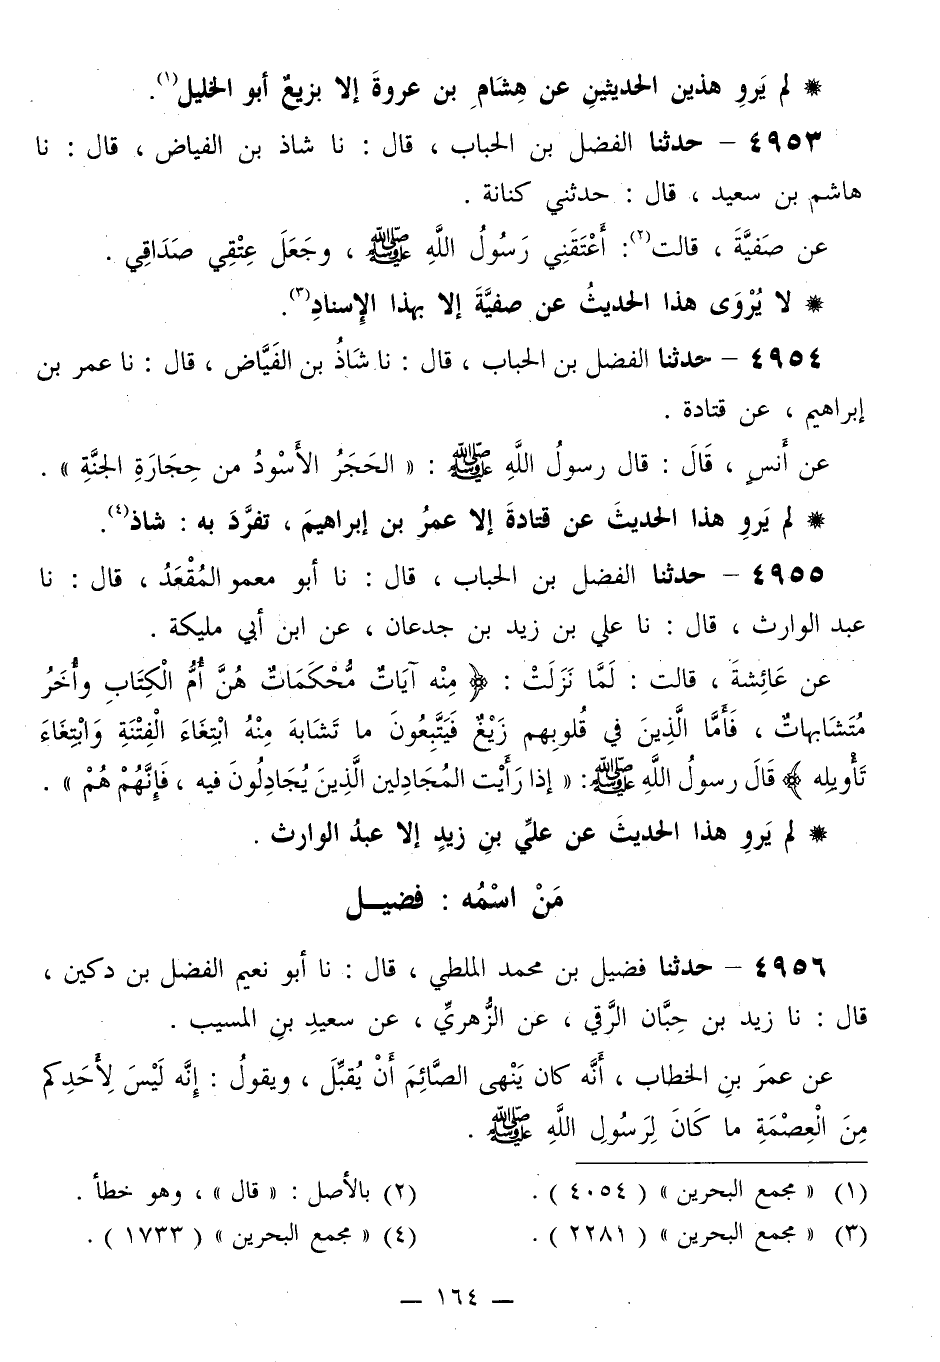 * لم يَروِ هذين الحديثينِ عن هِشَامِ بن عروةَ إلا بزيعٌ أبو الخليل(١).
٤٩٥٣ – حدثنا الفضل بن الحباب ، قال : نا شاذ بن الفياض ، قال : نا
هاشم بن سعيد ، قال : حدثني كنانة .
عن صَفيَّةَ ، قالت(٢): أَعْتَقَنِي رَسُولُ اللَّهِ ﷺ ، وجَعَلَ عِتْقِي صَدَاقِي .
* لا يُرْوَى هذا الحديثُ عن صفيَّةَ إلا بهذا الإِسنادِ(٣).
٤٩٥٤ – حدثنا الفضل بن الحباب ، قال : نا شَاذُ بن الفَيَّاض ، قال : نا عمر بن
إبراهيم ، عن قتادة .
عن أَنسٍ ، قَالَ : قال رسولُ اللَّهِ ﷺ : « الحَجَرُ الأَسْودُ من حِجَارَةِ الجنَّةِ » .
* لم يَروِ هذا الحديثَ عن قتادةَ إلا عمرُ بن إبراهيمَ ، تفرَّدَ به : شاذ(٤).
٤٩٥٥ – حدثنا الفضل بن الحباب ، قال : نا أبو معمو المُقْعَدُ ، قال : نا
عبد الوارث ، قال : نا علي بن زيد بن جدعان ، عن ابن أبي مليكة .
عن عَائِشةَ ، قالت : لَمَّا نَزَلَتْ : ﴿ مِنْه آيَاتٌ مُّحْكَمَاتٌ هُنَّ أُمُّ الْكِتَابِ وأُخَرُ
مُتَشَابهاتٌ ، فَأَمَّا الَّذِينَ في قُلوبِهم زَيْغٌ فَيَتَّبِعُونَ ما تَشَابهَ مِنْهُ ابْتِغَاءَ الْفِتْنَةِ وَابْتِغَاءَ
تَأْويلِه ﴾ قَالَ رسولُ اللَّهِ ﷺ: « إذا رَأَيْت المُجَادِلين الَّذِينَ يُجَادِلُونَ فيه ، فَإنَّهُمْ هُمْ » .
* لم يَروِ هذا الحديثَ عن عليِّ بنِ زيدٍ إلا عبدُ الوارث .
مَنْ اسْمُه : فضيـل
٤٩٥٦ – حدثنا فضيل بن محمد الملطي ، قال : نا أبو نعيم الفضل بن دكين ،
قال : نا زيد بن حِبَّان الرَّقي ، عن الزُّهريِّ ، عن سعيدِ بنِ المسيب .
عن عمرَ بنِ الخطاب ، أَنَّه كان يَنْهى الصَّائِمَ أَنْ يُقبِّلَ ، ويقولُ : إنَّه لَيْسَ لِأَحَدِكم
مِنَ الْعِصْمَةِ ما كَانَ لِرَسُولِ اللَّهِ ﷺ .
(١) « مجمع البحرين » ( ٤٠٥٤ ) . (٢) بالأصل : « قال » ، وهو خطأ .
(٣) « مجمع البحرين » ( ٢٢٨١ ) . (٤) « مجمع البحرين » ( ١٧٣٣ ) .
— ١٦٤ —